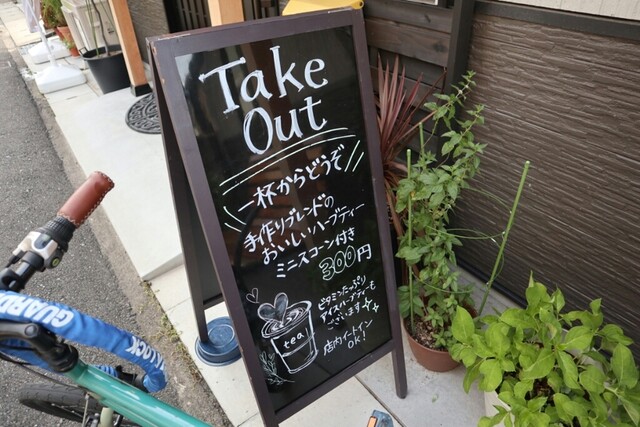 Take
Out
一杯からどうぞ
手作りブレンドの
おいしいハーブティー
ミニスコーン付き
300円
ビタミンたっぷり
アイスハーブティーも
ございます
店内イートイン
OK!
tea
GUARD
LOCK